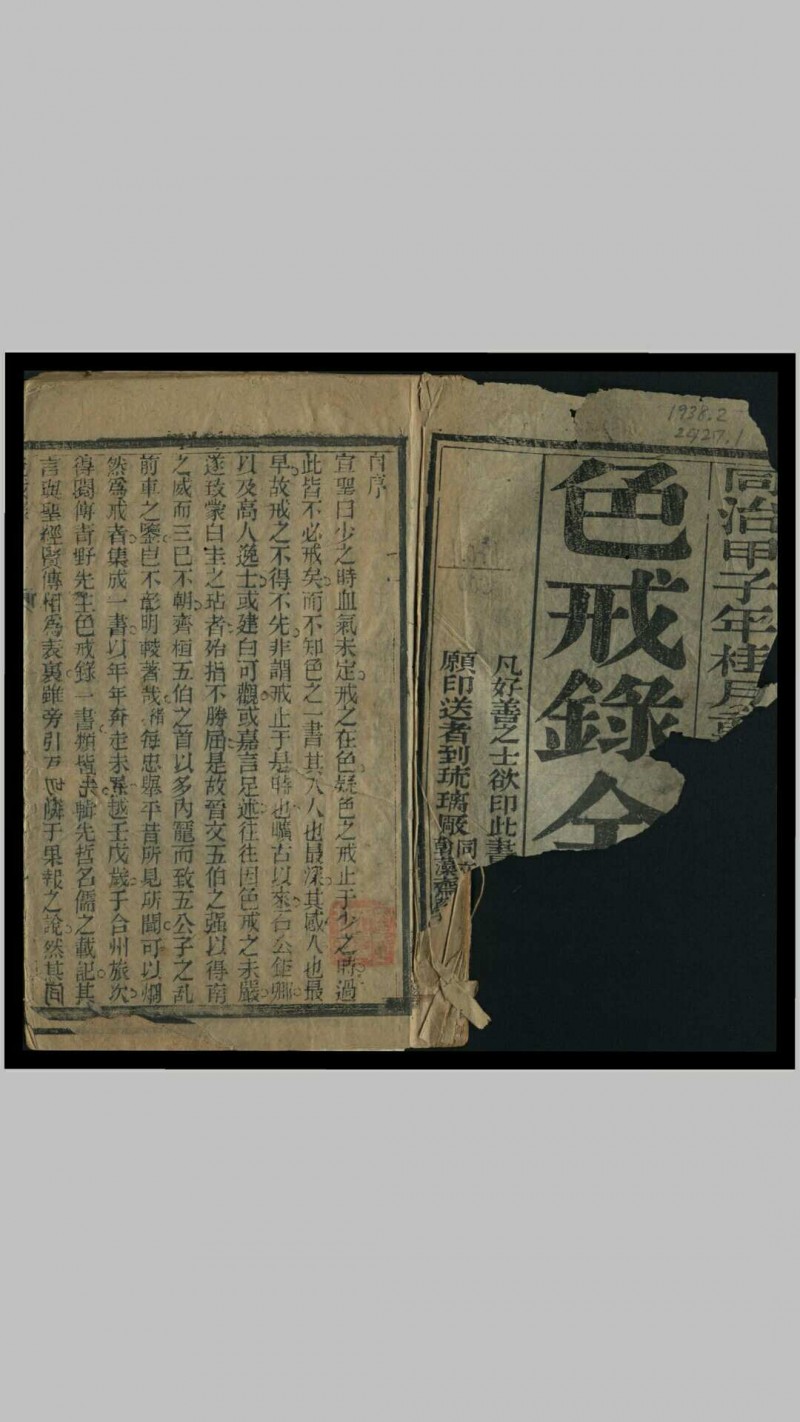 1938.2
2427.1
同治甲子年桂月
色戒錄全
凡好善之士欲印此書
願印送者到琉璃厰
自序
宣聖曰少之時血氣未定戒之在色疑色之戒止于少之時過
此皆不必戒矣而不知色之一書其入人也最深其感人也最
早故戒之不得不先非謂戒止于是時也曠古以來名公鉅卿
以及高人逸士或建白可觀或嘉言足述往往因色戒之未嚴
遂致蒙白圭之玷者殆指不勝屈是故晉文五伯之强以得南
之威而三巳不朝齊桓五伯之首以多內寵而致五公子之乱
前車之鑒豈不彰明較著哉緒每忠舉平昔所見所聞可以爛
然爲戒者集成一書以年年奔走未果越壬戊歲于合州旅次
得閱傳青野先生色戒錄一書類皆先哲名儒之載記其
言與聖經賢傳相爲表裏雖旁引互切隣于果報之說然其間